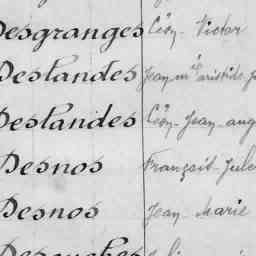 Desgranges Léon Victor
Deslandes Jean m^el aristide
Deslandes Léon Jean aug
Desnos François Jule
Desnos Jean Marie